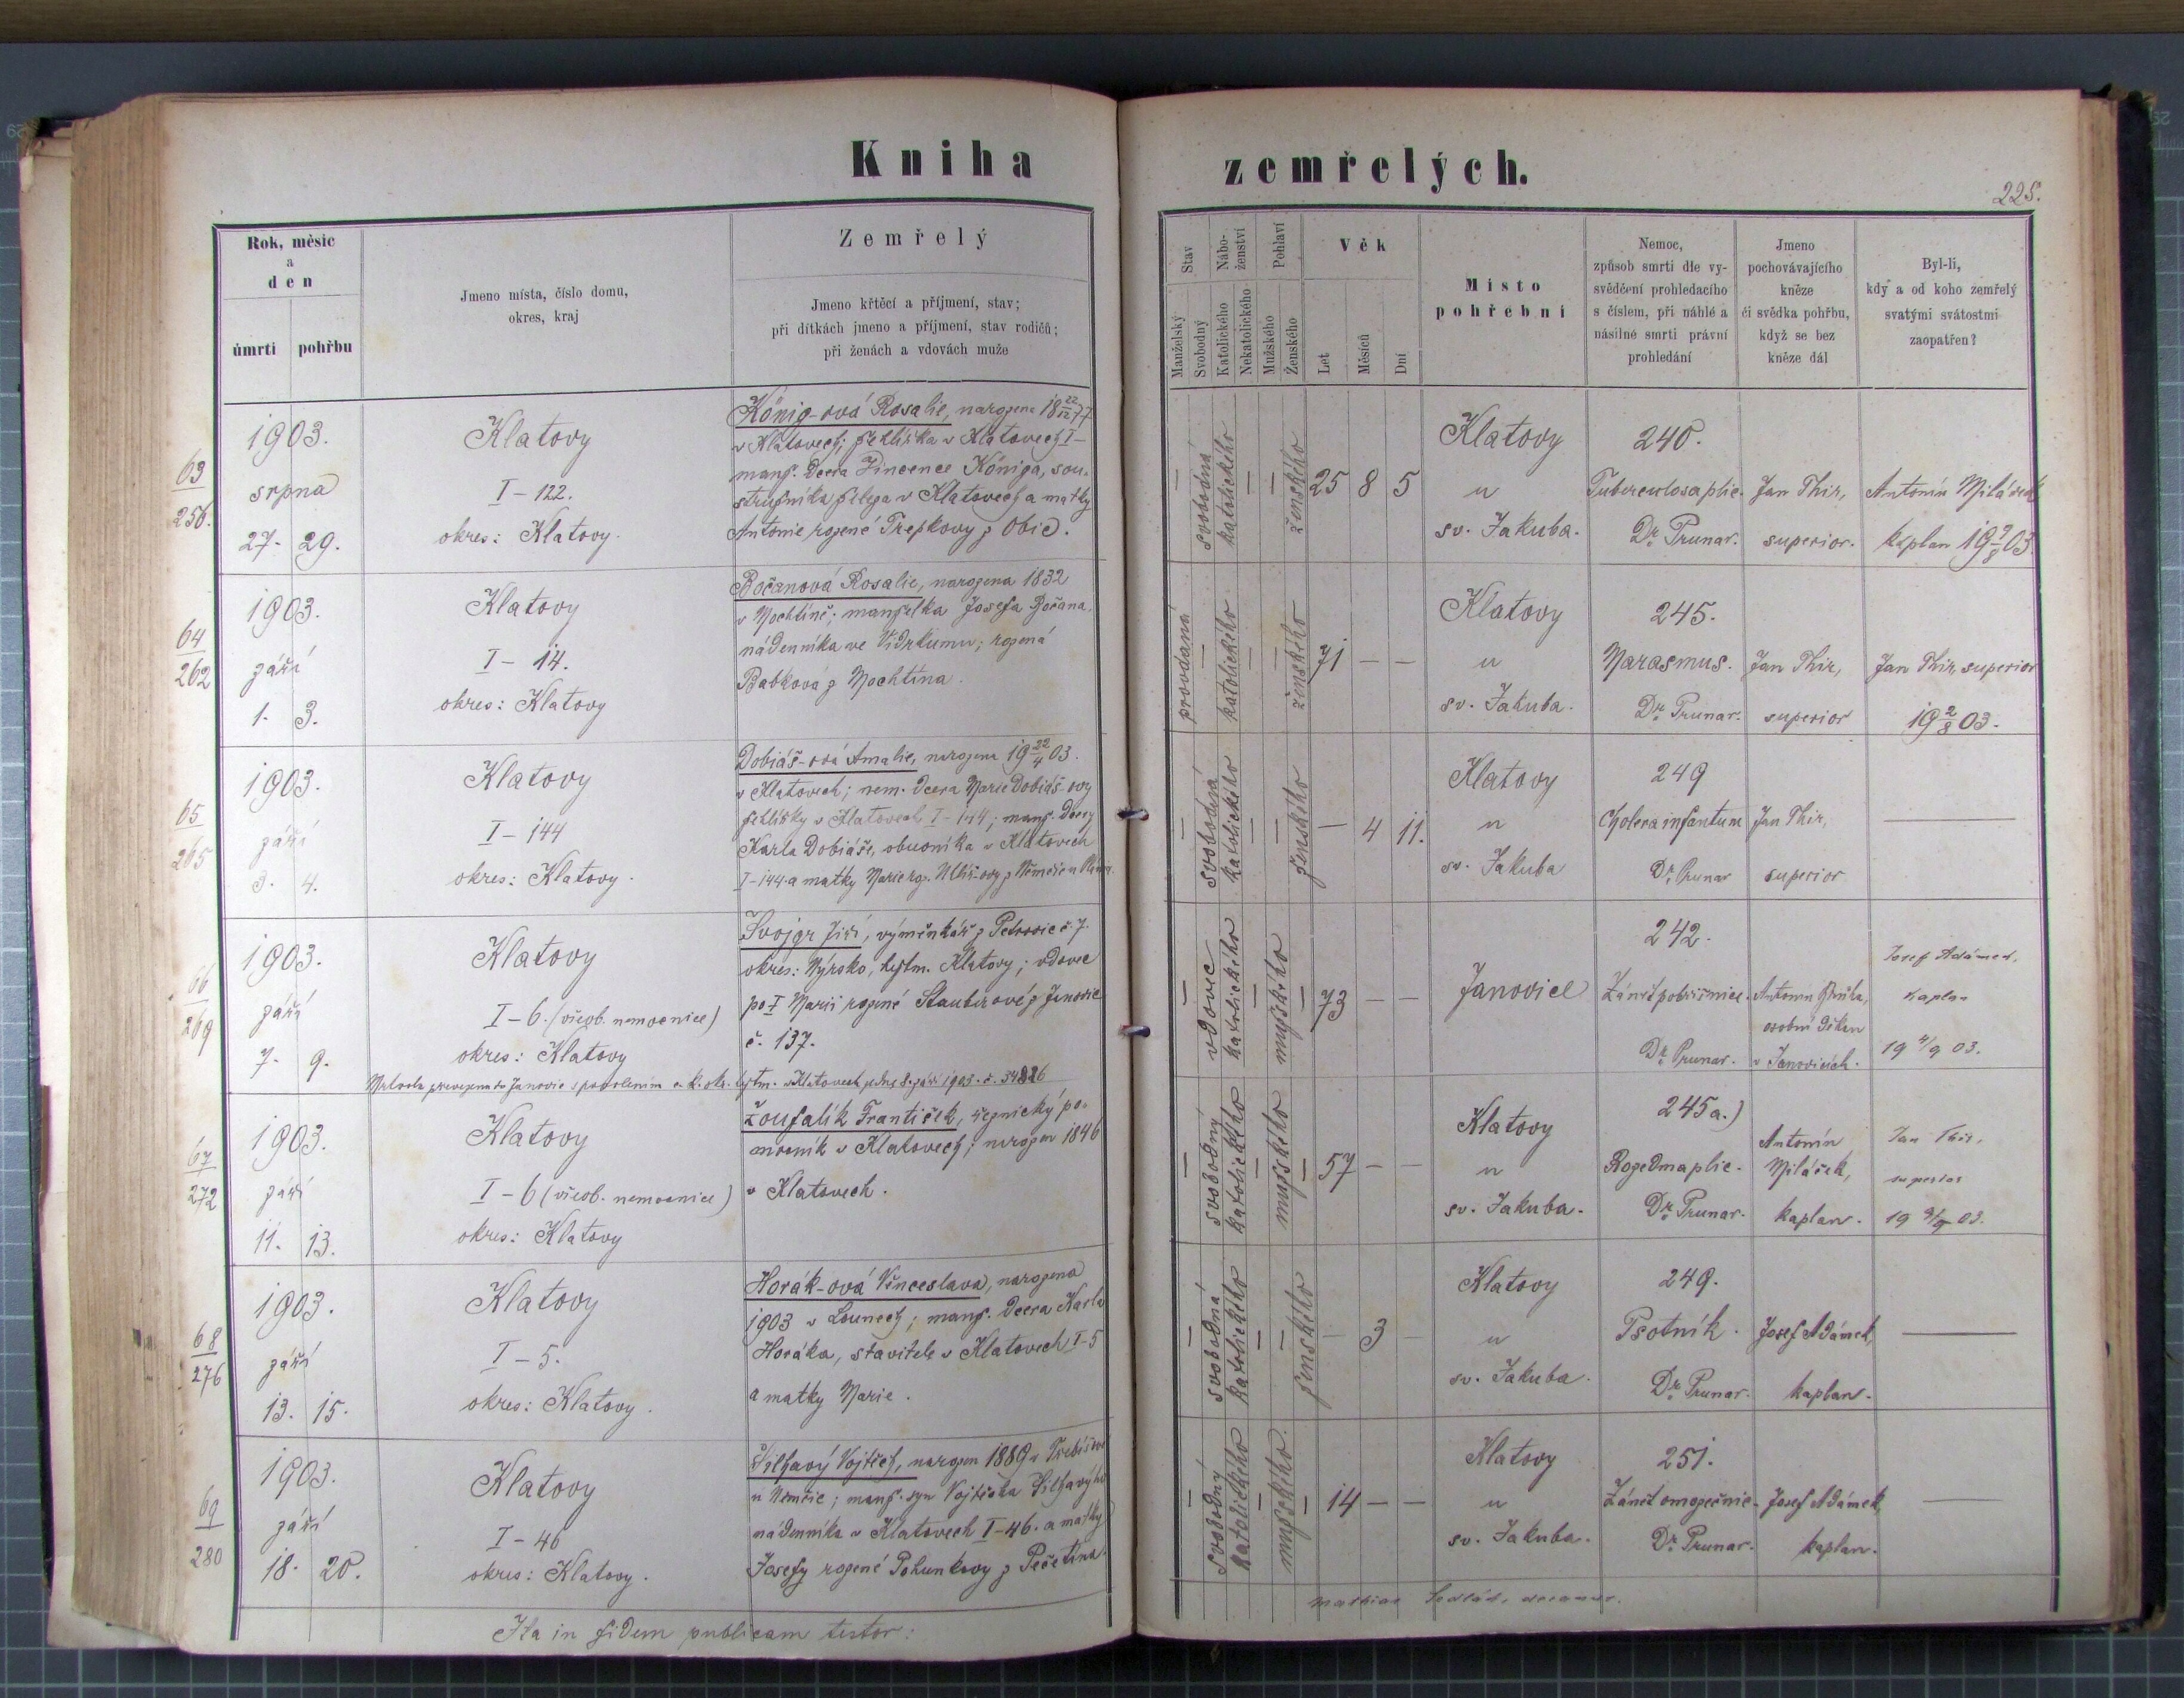 Kniha zemřelých.
225.
Rok, měsíc
a
den
úmrtí pohřbu
Jmeno místa, číslo domu,
okres, kraj
Zemřelý
Jmeno křtěcí a příjmení, stav;
při dítkách jmeno a příjmení, stav rodičů;
při ženách a vdovách muže
Stav
Manželský
Svobodný
Nábo-
ženství
Katolického
Nekatolického
Pohlaví
Mužského
Ženského
Věk
Let
Měsíců
Dní
Místo
pohřební
Nemoc,
způsob smrti dle vy-
svědčení prohledacího
s číslem, při náhlé a
násilné smrti právní
prohledání
Jmeno
pochovávajícího
kněze
či svědka pohřbu,
když se bez
kněze dál
Byl-li,
kdy a od koho zemřelý
svatými svátostmi
zaopatřen?
63
256.
1903.
srpna
27. 29.
Klatovy
I – 122.
okres: Klatovy.
König-ová Rosalie, narozena 18 22/12 77
v Klatovech; žehlířka v Klatovech I –
manž. dcera Vincence Königa, sou-
stružníka v Klatovech a matky
Antonie rozené Trepkovy z Obic.
— svobodná katolického — — ženského 25 8 5
Klatovy
u
sv. Jakuba.
240.
Tuberculosa plic.
Dr. Prunar.
Jan Thir,
superior.
Antonín Miláček
kaplan
64
262
1903.
září
1. 3.
Klatovy
I – 14.
okres: Klatovy
Bočanová Rosalie, narozena 1832
v Mochtíně; manželka Josefa Bočana,
nádenníka ve Vidrkumu; rozená
Babková z Mochtína.
provdaná — katolického — — ženského 71 — —
Klatovy
u
sv. Jakuba.
245.
Marasmus.
Dr. Prunar.
Jan Thir,
superior
Jan Thir, superior
19 2/8 03.
65
265
1903.
září
3. 4.
Klatovy
I – 144
okres: Klatovy.
Dobiáš-ová Amalie, narozena 19 22/4 03.
v Klatovech; nem. dcera Marie Dobiáš-ovy
žehlířky v Klatovech I-144; manž. dcery
Karla Dobiáše, obuvníka v Klatovech
I-144. a matky Marie roz.
— svobodná katolického — — ženského — 4 11.
Klatovy
u
sv. Jakuba
249
Cholera infantum
Dr. Prunar
Jan Thir,
superior
66
269
1903.
září
7. 9.
Klatovy
I – 6. (všeob. nemocnice)
okres: Klatovy
Svojgr Jiří, výměnkář z Petrovic č. 7.
okres: Nýrsko, hejtm. Klatovy; vdovec
po I Marii rozené Stauberové z Janovic
č. 137.
Mrtvola převezena do Janovic s povolením c. k. okr. hejtm. v Klatovech ze dne 8. září 1903. č. 34826
— vdovec katolického — mužského — 73 — —
Janovice
242.
Zánět pobřišnice.
Dr. Prunar.
Antonín
osobní děkan
v Janovicích.
Josef Adámek,
kaplan
19 4/9 03.
67
272
1903.
září
11. 13.
Klatovy
I – 6 (všeob. nemocnice)
okres: Klatovy
Zoufalík František, řeznický po-
mocník v Klatovech; narozen 1846
v Klatovech.
— svobodný katolického — mužského — 57 — —
Klatovy
u
sv. Jakuba.
245a.)
Rozedma plic.
Dr. Prunar.
Antonín
Miláček,
kaplan.
Jan Thir,
superior
19 9/9 03.
68
276
1903.
září
13. 15.
Klatovy
I – 5.
okres: Klatovy.
Horák-ová Věnceslava, narozena
1903 v Lounech; manž. dcera Karla
Horáka, stavitele v Klatovech I-5
a matky Marie.
— svobodná katolického — — ženského — 3 —
Klatovy
u
sv. Jakuba.
249.
Psotník.
Dr. Prunar.
Josef Adámek,
kaplan.
69
280
1903.
září
18. 20.
Klatovy
I – 46
okres: Klatovy.
Silhavý Vojtěch, narozen 1889 v
u Němčic; manž. syn Vojtěcha Silhavýho
nádenníka v Klatovech I-46. a matky
Josefy rozené Pohunkovy z Pečetína.
— svobodný katolického — mužského — 14 — —
Klatovy
u
sv. Jakuba.
251.
Zánět
Dr. Prunar.
Josef Adámek,
kaplan.
Ita in fidem publicam testor:
Mathias Sedlák, decanus.